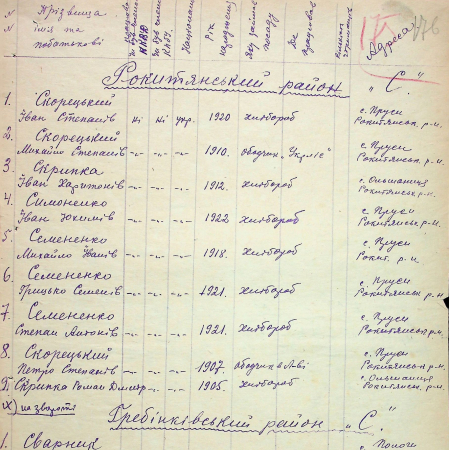 № Прізвища
№ ім'я та по батькові
Рік народження
Яку займав посаду
Де працював
Адреса
176
Рокитянський район „С."
1. Скорецький
Іван Степанів ні ні укр. 1920 хлібороб с. Пруси Рокитянськ. р-н.
2. Скорецький
Михайло Степанів -„- -„- -„- 1910. с. Пруси Рокитянськ. р-н
3. Скрипка
Іван Харитонів -„- -„- -„- 1912. хлібороб с. Ольшаниця Рокитянськ р-н.
4. Симоненко
Іван Юхимів -„- -„- -„- 1922 хлібороб с. Пруси Рокитянськ. р-н
5. Семененко
Михайло Іванів -„- -„- -„- 1918. хлібороб с. Пруси Рокит. р-н.
6. Семененко
Грицько Семенів -„- -„- -„- 1921. хлібороб с. Пруси Рокитянськ р-н
7. Семененко
Степан Антонів -„- -„- -„- 1921. хлібороб с. Пруси Рокитянськ р-н.
8. Скорецький
Петро Степанів -„- -„- -„- 1907 с. Пруси Рокитянськ р-н
Скрипка Роман Дмитр -„- -„- -„- 1905 хлібороб с. Ольшаниця Рокитянськ р-н
х) на звороті
Гребінківський район „С."
1. Сварник с. Пологи